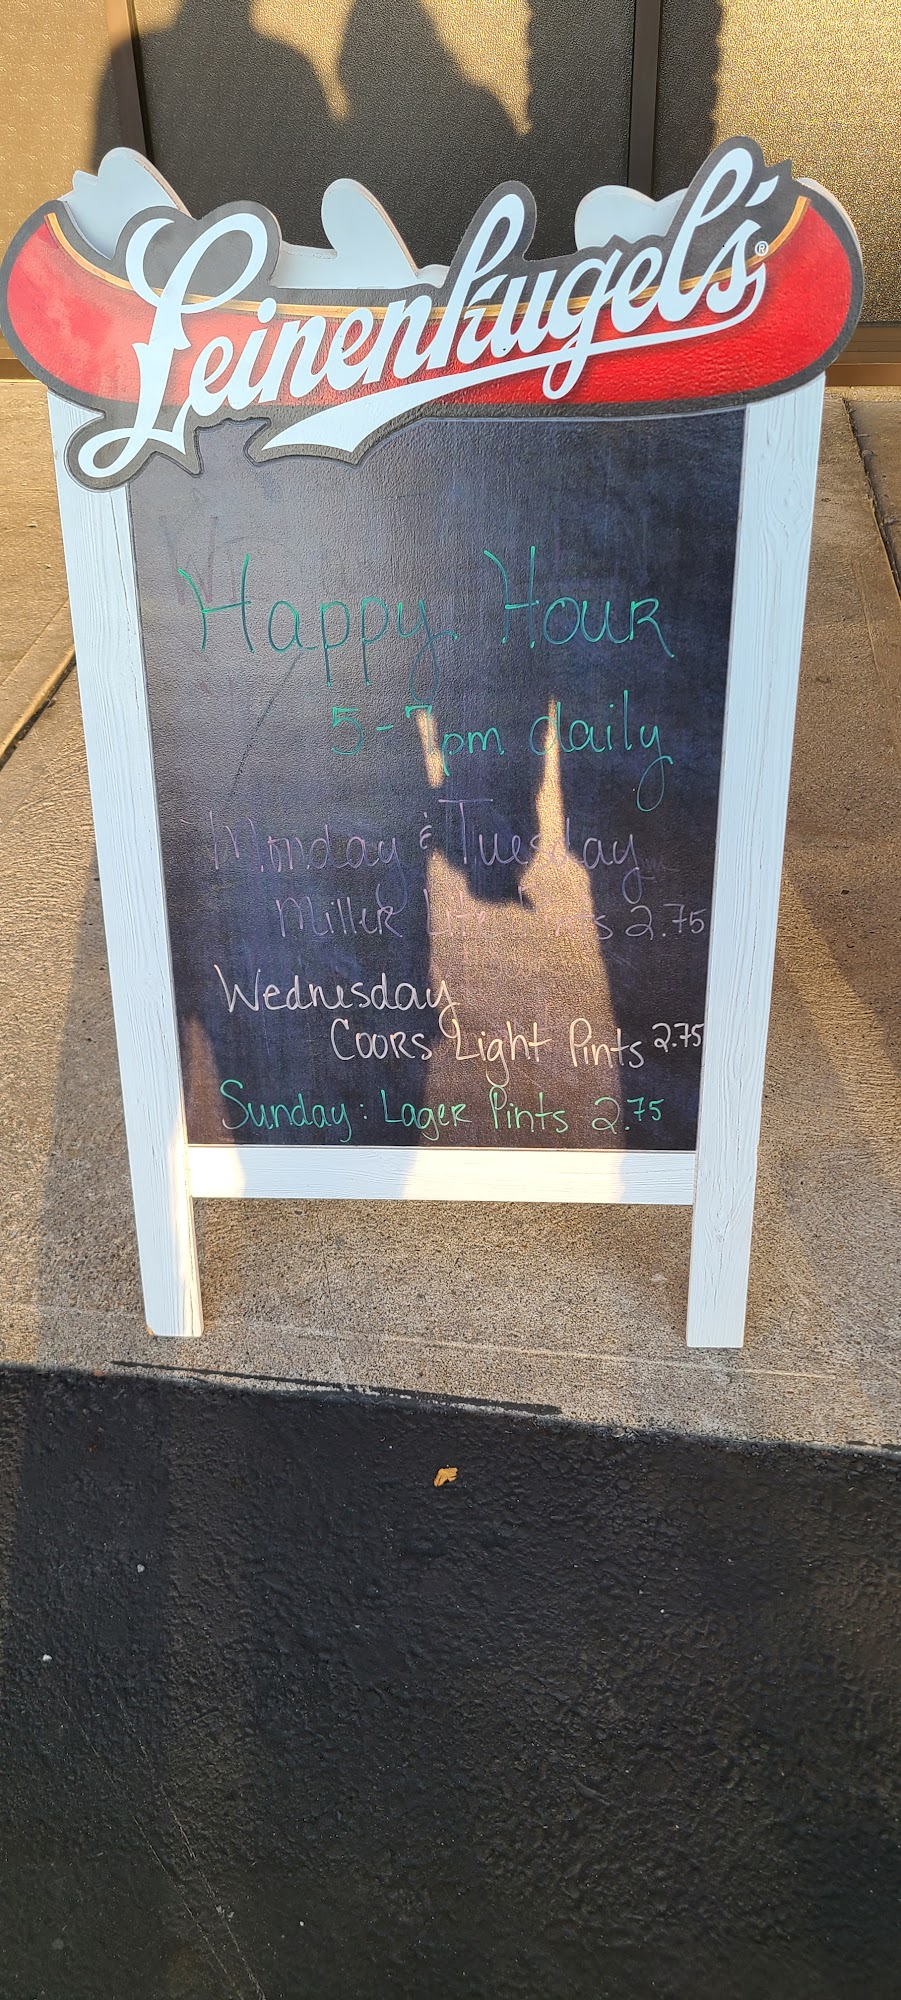 Leinenkugel's®
Happy Hour
5-7pm daily
Monday & Tuesday
Miller Lite Pints 2.75
Wednesday
Coors Light Pints 2.75
Sunday: Lager Pints 2.75